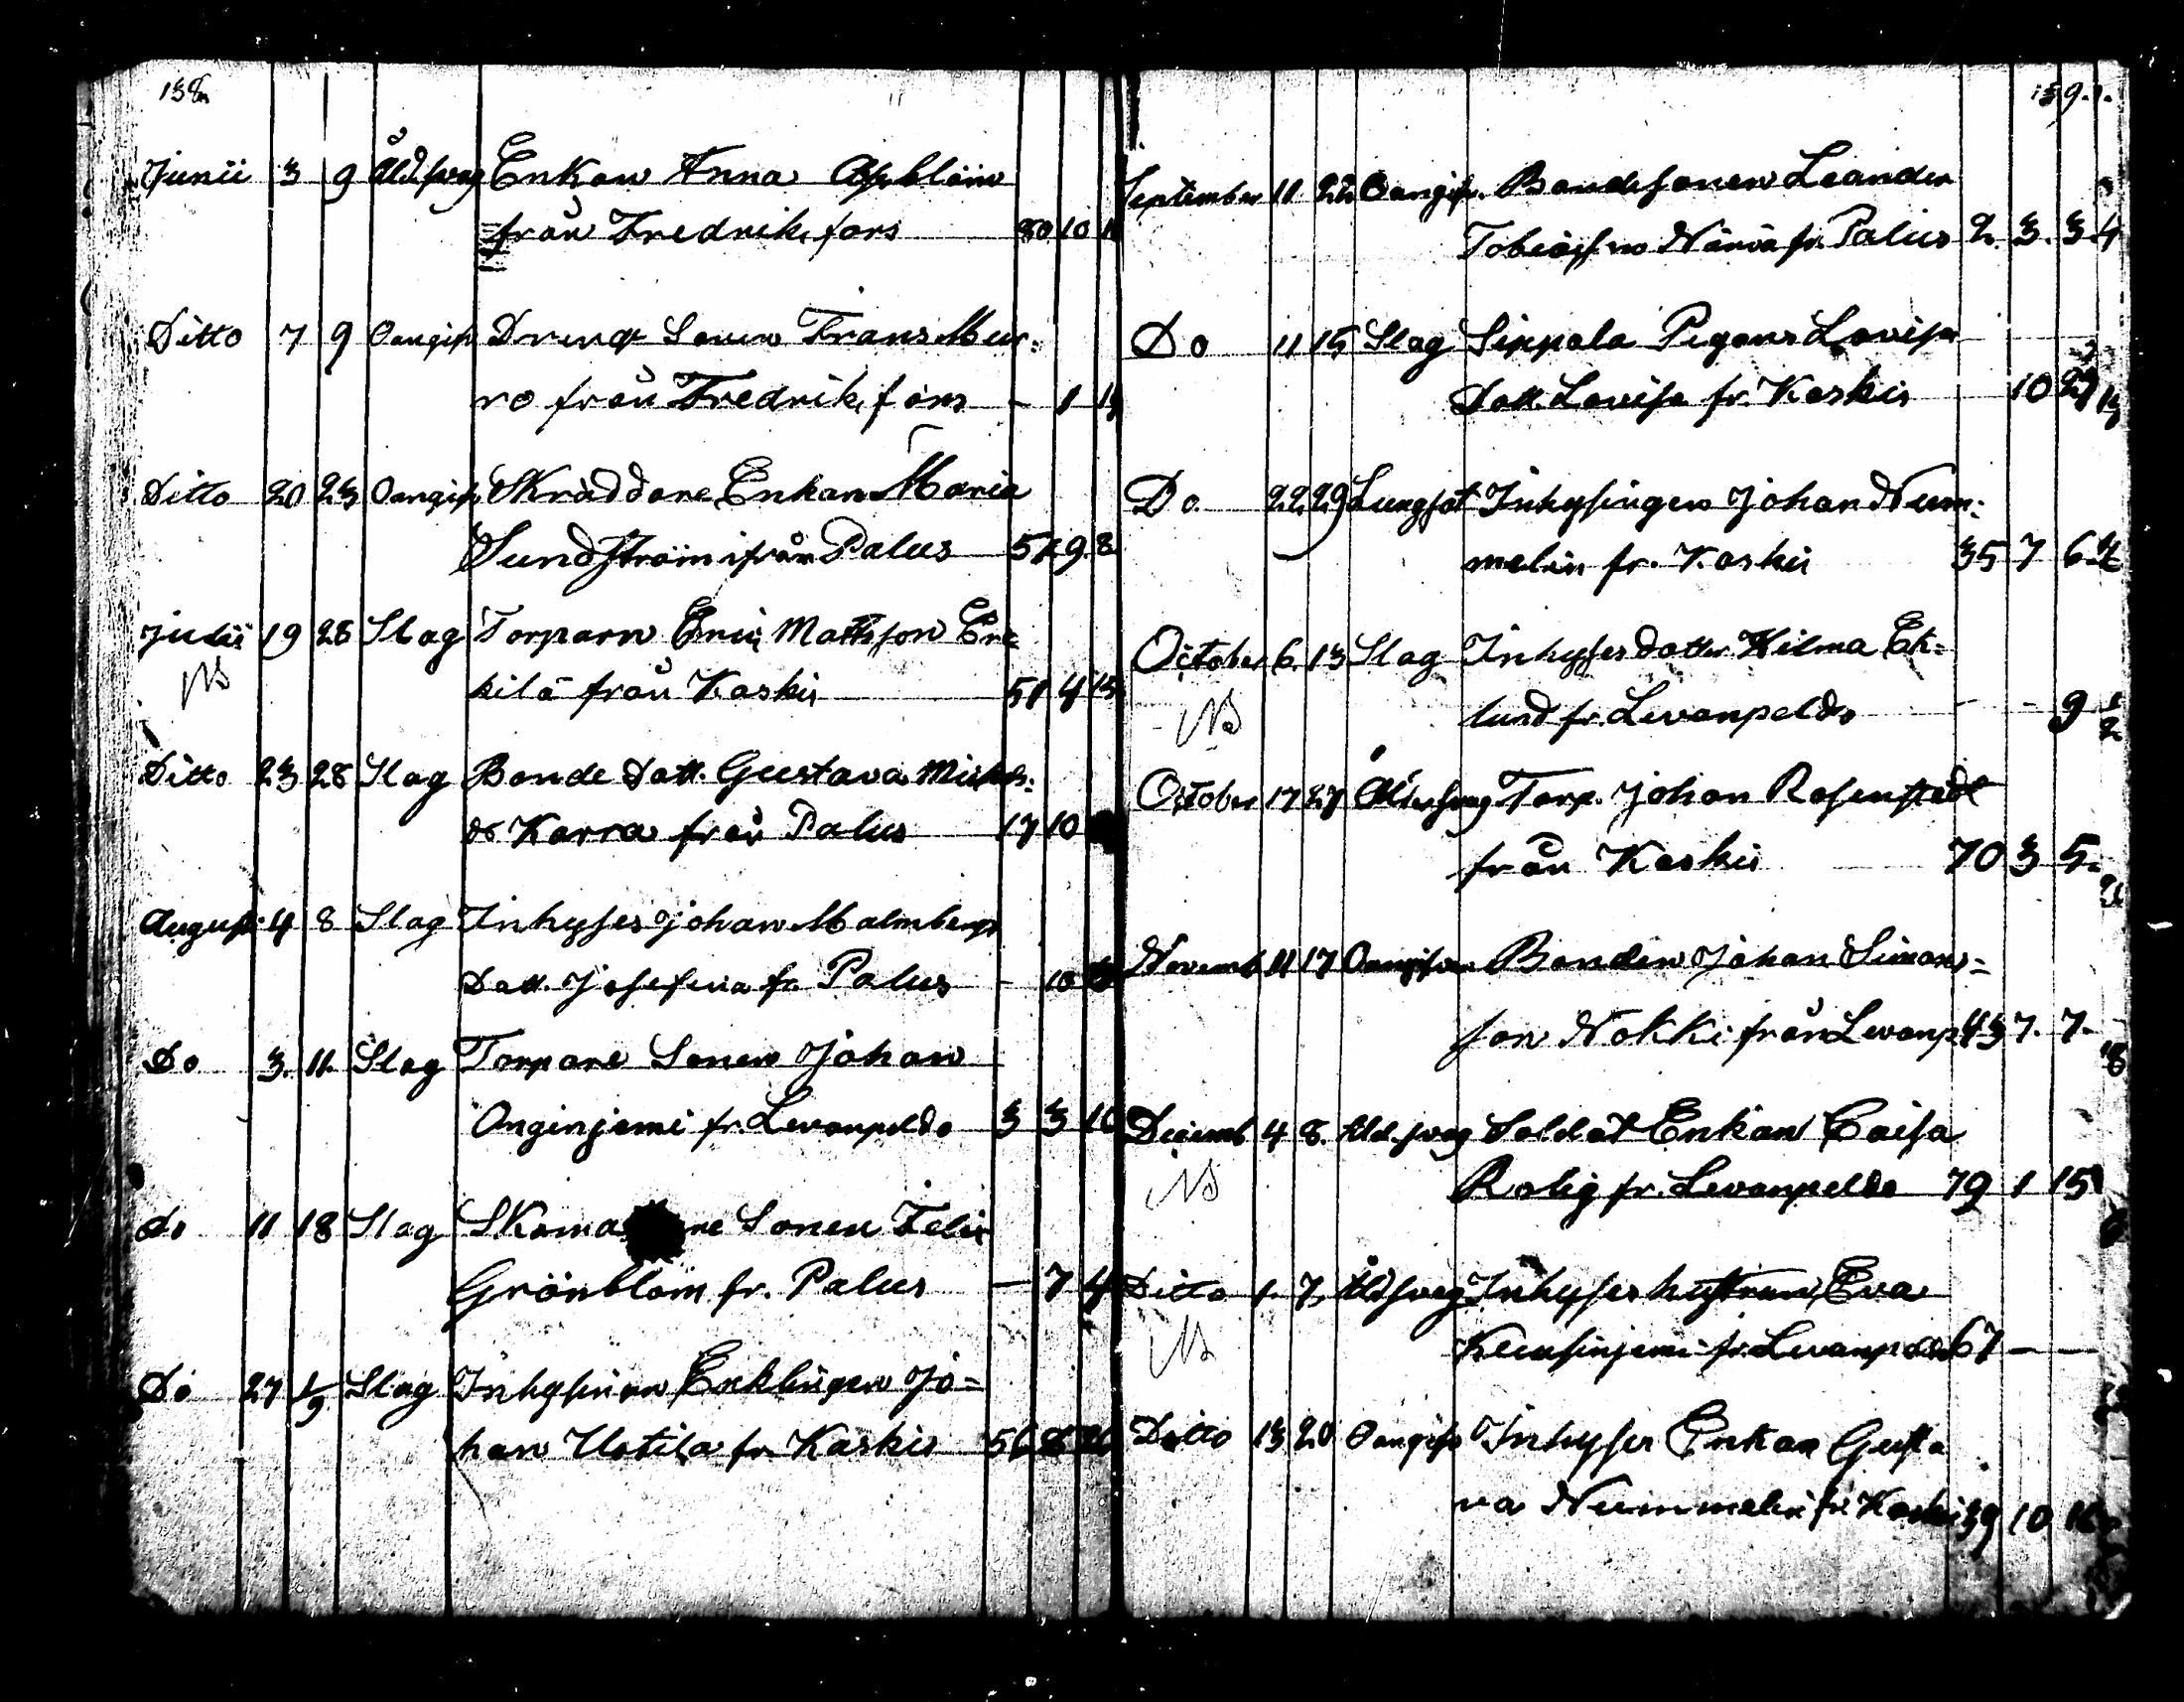 138
Junii 3 9 Åld.swag Enkan Anna Aspblom
från Fredriksfors 80 10
Ditto 7 9 Oangif. Dreng Sonen Frans Mur=
ro från Fredriksfors — 1
Ditto 20 23 Oangif. Skräddare Enkan Maria
Sundström ifrån Palus 9 8
Julii 19 28 Slag Torparn Eric Mattsson Er=
NB kilä från Kaskis 51 4 15
Ditto 23 28 Slag Bonde Dott. Gustava Mickels=
dr Karra från Palus 17 10
August 4 8 Slag Inhyses Johan Malmbergs
Dott. Josefina fr. Palus — 10
Do 3. 11. Slag Torpare Sonen Johan
Onginjemi fr. Levanpeldo 3 3 10
Do 11 18 Slag Skoma re Sonen Felix
Grönblom fr. Palus — 7 4
Do 27 1/9 Slag Inhysingen Enklingen Jo=
han Uotila fr. Kaskis 56
139.
September 11 22 Oangif. Bondesonen Leander
Tobiasson Närvä fr. Palus 2. 3. 3
Do 11 15 Slag Sippola Pigans Lovisa
Dott. Lovisa fr. Kaskis 10 27
Do. 22 29 Lungsot Inhysingen Johan Num=
melin fr. Kaskis 35 7 6
October 6. 13 Slag Inhyses dotter Hilma Ek=
NB lund fr. Levanpeldo - - 9
October 17 27 Ålderswag Torp. Johan Rosenstedt
från Kaskis 70 3 5
Novemb 11 17 Oangifven Bonden Johan Simons=
son Nokki från Levanp 43 7. 7.
Decemb 4 8. Åld.swag Soldat Enkan Caisa
NB Rolig fr. Levanpeldo 79 1 15
Ditto 1. 7. Åldswag Inhyses hustrun Eva
NB fr. Levanpeldo 67 — —
Ditto 13 20 Oangif Inhyses Enkan Gusta
va Nummelin fr. Kaskis 39 10 16